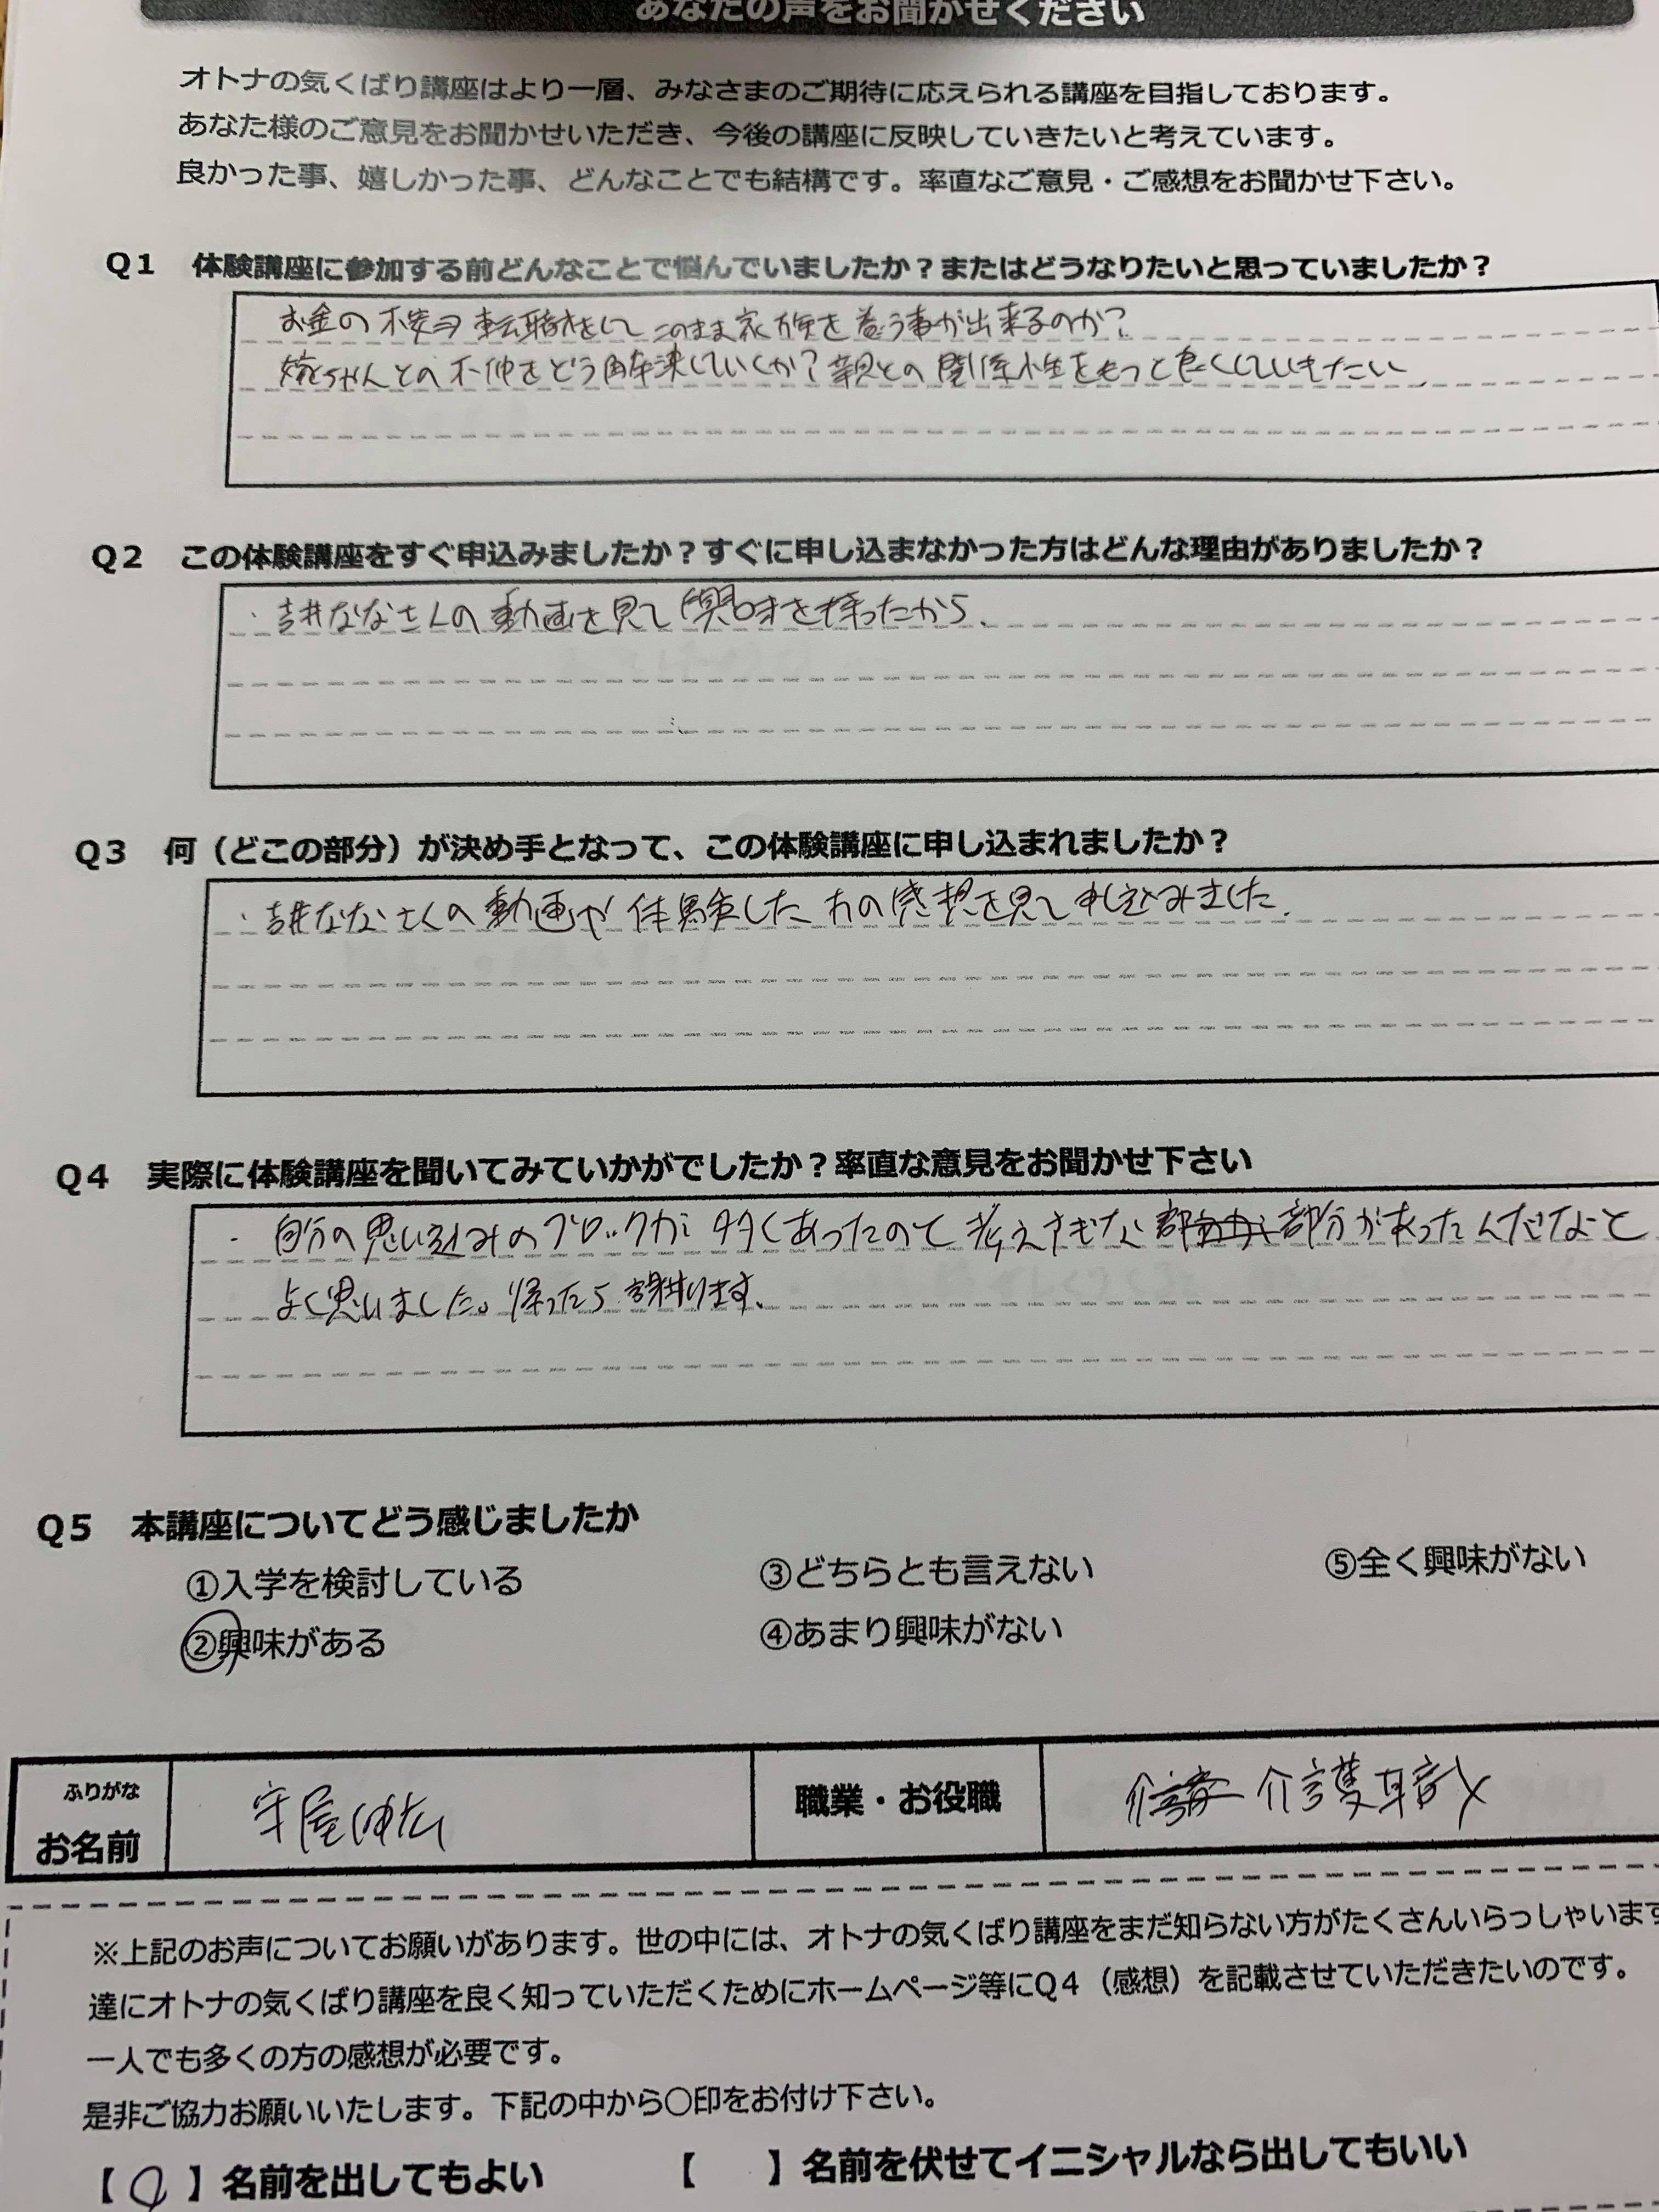 あなたの声をお聞かせください
オトナの気くばり講座はより一層、みなさまのご期待に応えられる講座を目指しております。
あなた様のご意見をお聞かせいただき、今後の講座に反映していきたいと考えています。
良かった事、嬉しかった事、どんなことでも結構です。率直なご意見・ご感想をお聞かせ下さい。
Q1 体験講座に参加する前どんなことで悩んでいましたか？またはどうなりたいと思っていましたか？
お金の不安 転職をして このまま家族を養う事が出来るのか？
嫁ちゃんとの不仲をどう解決していくか？親との関係性をもっと良くしていきたい
Q2 この体験講座をすぐ申込みましたか？すぐに申し込まなかった方はどんな理由がありましたか？
・吉井ななさんの動画を見て興味を持ったから、
Q3 何（どこの部分）が決め手となって、この体験講座に申し込まれましたか？
・吉井ななさんの動画や体験した方の感想を見て申し込みました、
Q4 実際に体験講座を聞いてみていかがでしたか？率直な意見をお聞かせ下さい
・自分の思い込みのブロックが多くあったのて考えすぎな部分があったんだなと
よく思いました。帰ったら謝ります、
Q5 本講座についてどう感じましたか
①入学を検討している ③どちらとも言えない ⑤全く興味がない
②興味がある ④あまり興味がない
ふりがな
お名前 守屋伸広 職業・お役職 介護職
※上記のお声についてお願いがあります。世の中には、オトナの気くばり講座をまだ知らない方がたくさんいらっしゃいます
達にオトナの気くばり講座を良く知っていただくためにホームページ等にQ4（感想）を記載させていただきたいのです。
一人でも多くの方の感想が必要です。
是非ご協力お願いいたします。下記の中から〇印をお付け下さい。
【〇】名前を出してもよい 【 】名前を伏せてイニシャルなら出してもいい